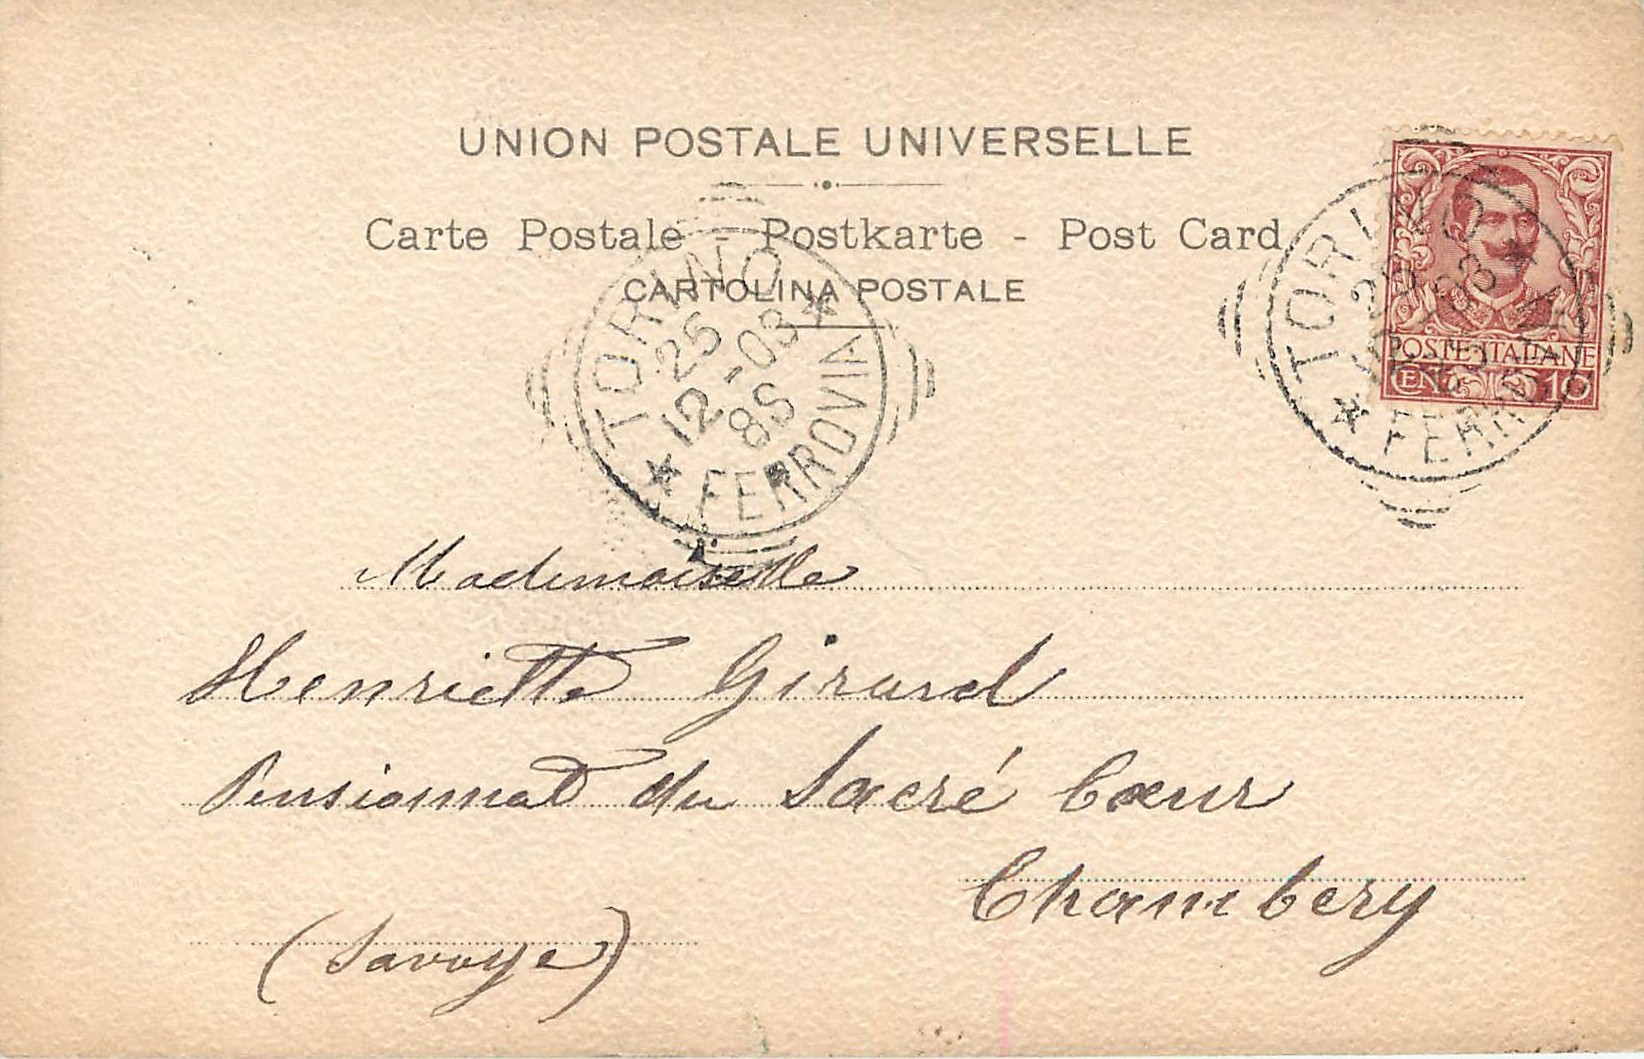 UNION POSTALE UNIVERSELLE
Carte Postale - Postkarte - Post Card
CARTOLINA POSTALE
TORINO
25
12-03
8S
* FERROVIA *
TORINO
* FERROVIA *
POSTE ITALIANE
CEN. 10
Mademoiselle
Henriette Girard
Pensionnat du Sacré Cœur
Chambery
(Savoye)